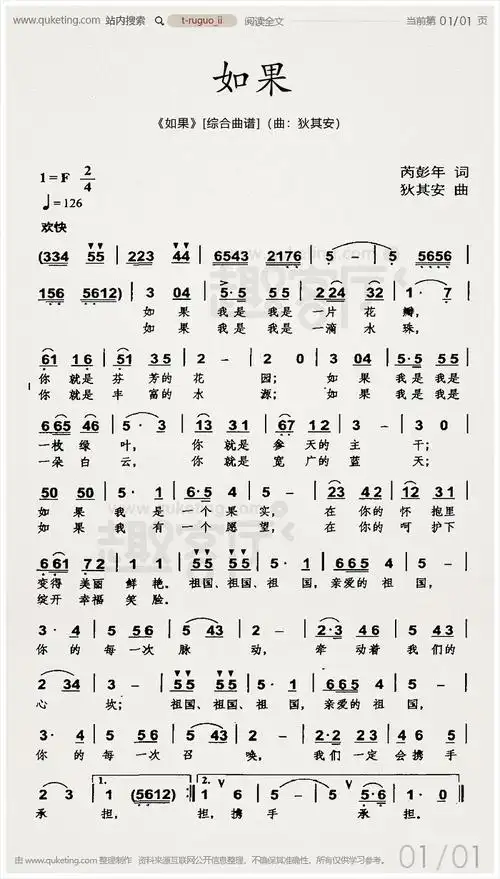 www.quketing.com 站内搜索 t-ruguo_ii 阅读全文 当前第 01/01 页
如果
《如果》[综合曲谱]（曲：狄其安）
1=F 2/4
芮彭年 词
♩=126
狄其安 曲
欢快
(334 55 | 223 44 | 6543 2176 | 5 - | 5 5656 |
156 5612) | 3 04 | 5·5 55 | 224 32 | 1· 7 |
如 果 我是 我是 一片 花 瓣，
如 果 我是 我是 一滴 水 珠，
61 16 | 51 35 | 2 - | 2 0 | 3 04 | 5·5 55 |
你 就是 芬 芳的 花 园； 如 果 我是 我是
你 就是 丰 富的 水 源； 如 果 我是 我是
665 46 | 5· 3 | 13 31 | 67 12 | 3 - | 3 0 |
一枝 绿 叶， 你 就是 参 天的 主 干；
一朵 白 云， 你 就是 宽 广的 蓝 天；
50 50 | 5· 1 | 6·5 4 | 5 - | 23 42 | 12 31 |
如 果 我 是 一个 果 实， 在 你的 怀 抱里
如 果 我 有 一个 愿 望， 在 你的 呵 护下
661 72 | 1 1 | 55 55 | 5· 1 | 665 4 | 5 - |
变得 美丽 鲜 艳。 祖国、祖国、祖 国，亲爱的 祖 国，
绽开 幸福 笑 脸。
3· 4 | 5 56 | 5 43 | 2 - | 2·3 46 | 5 43 |
你 的 每 一次 脉 动， 牵 动着 我 们的
2 34 | 3 - | 55 55 | 5· 1 | 665 4 | 5 - |
心 坎； 祖国、祖国、祖 国，亲爱的 祖 国，
3· 4 | 5 56 | 5 43 | 2 - | 2·2 23 | 4 56 |
你 的 每 一次 召 唤， 我们 一定 会 携手
1. 2.
2 3 | 1 (5612) :| 1 6 | 5 - | 5 5·6 | 1· 0 |
承 担， 担，携 手 承 担。
由 www.quketing.com 整理制作 资料来源互联网公开信息整理，不确保其准确性，所有仅供学习参考。 01/01